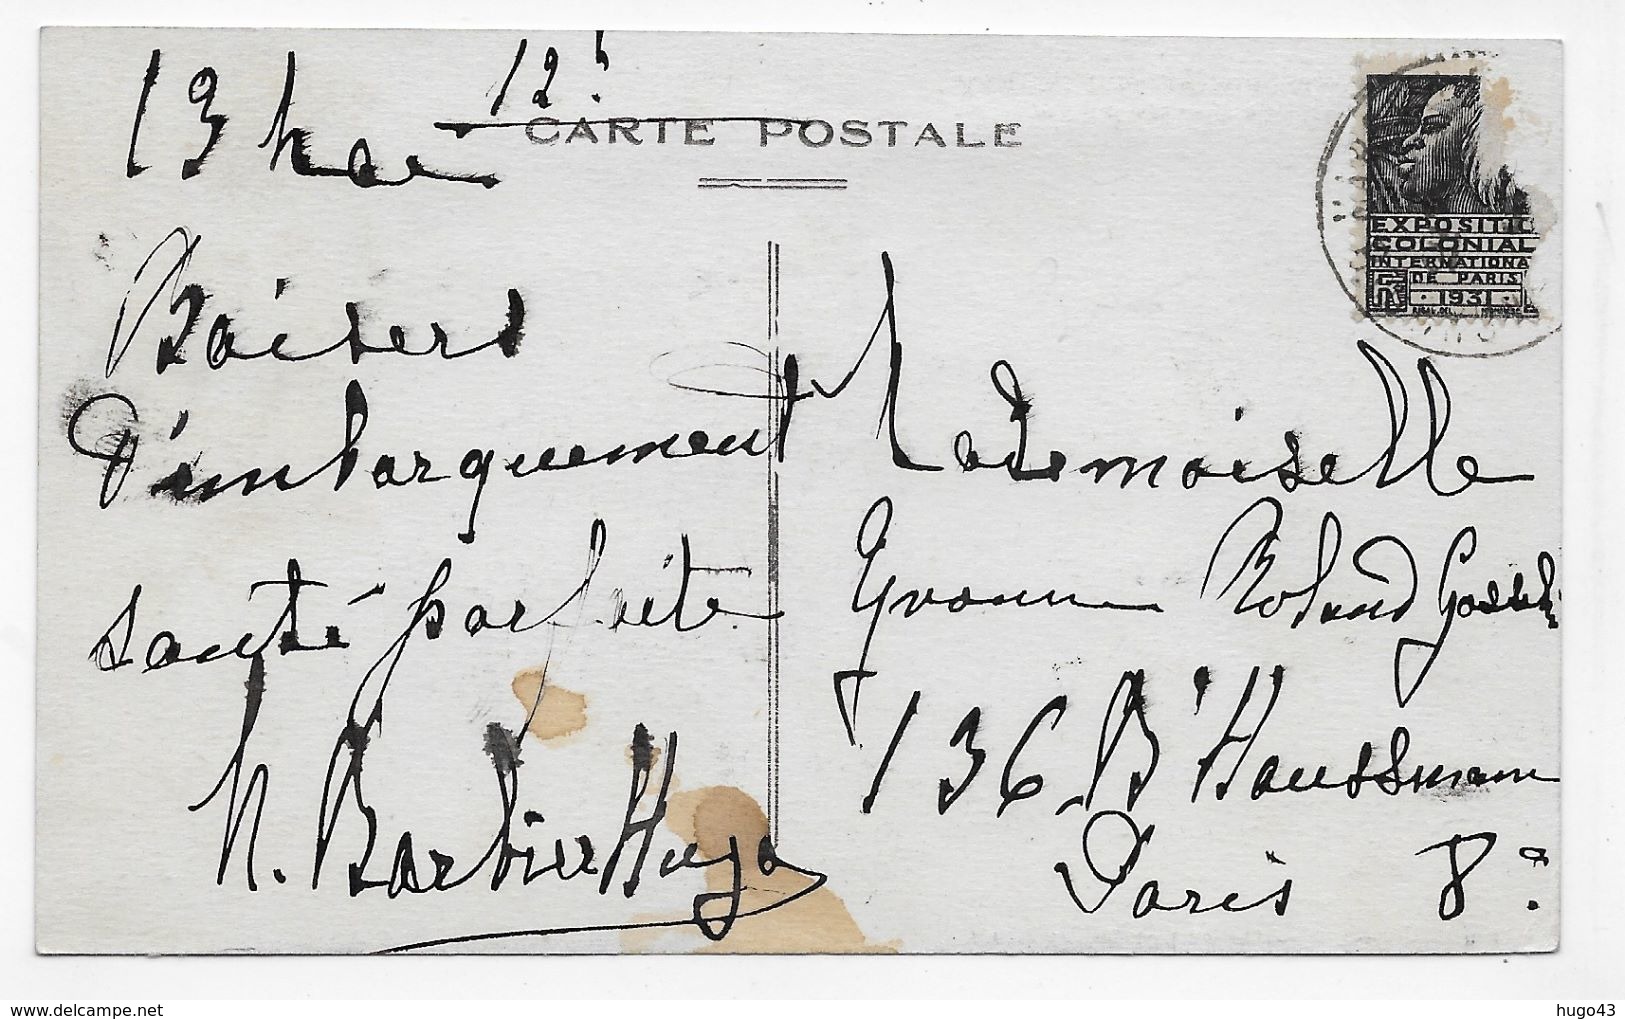 13 Mai 12!
CARTE POSTALE
Baisers
d'embarquement
santé parfaite
M. Barbier Hugo
EXPOSITIO
COLONIAL
INTERNATIONA
DE PARIS
1931
Mademoiselle
Yvonne Roland Gosselin
136 Bd Haussmann
Paris 8e
hugo43